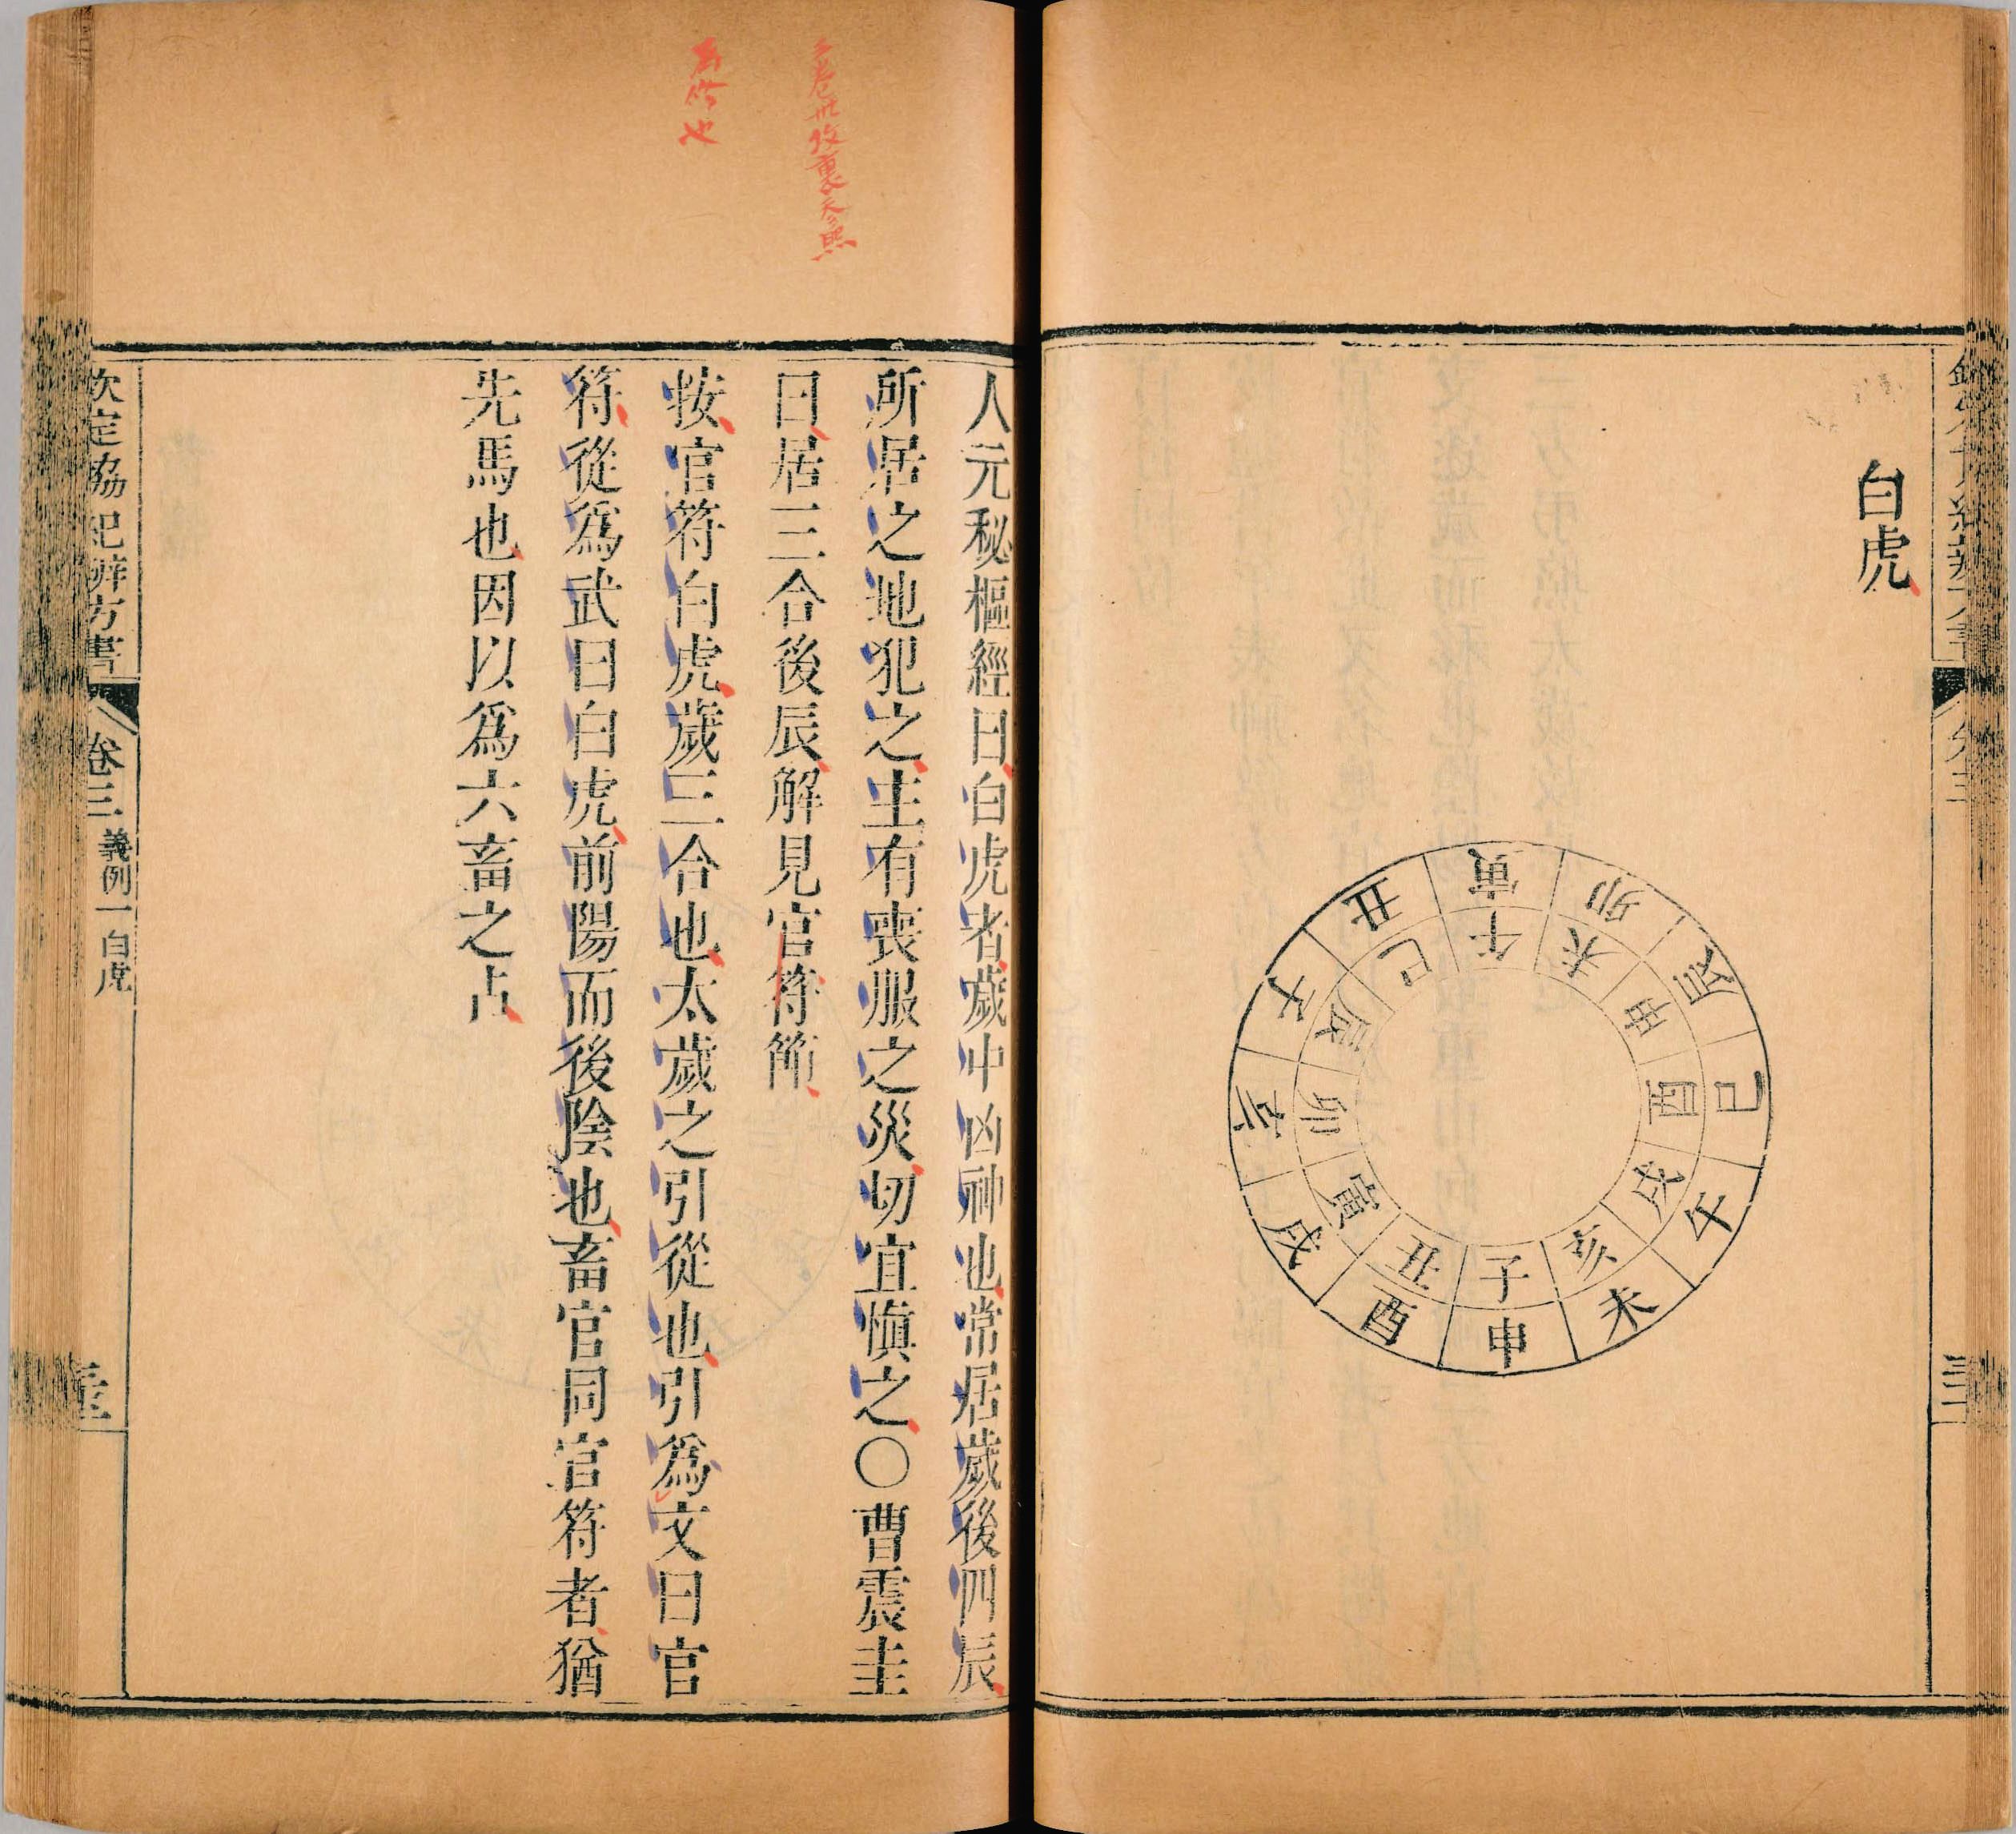 白虎
寅
卯
辰
巳
午
未
申
酉
戌
亥
子
丑
午
未
申
酉
戌
亥
子
丑
寅
卯
辰
巳
人元秘樞經曰白虎者歲中凶神也常居歲後四辰
所居之地犯之主有喪服之災切宜慎之〇曹震圭
曰居三合後辰解見官符節
按官符白虎歲三合也太歲之引從也引爲文曰官
符從爲武曰白虎前陽而後陰也畜官同官符者猶
先馬也因以爲六畜之占
欽定協紀辨方書
卷三
義例一 白虎